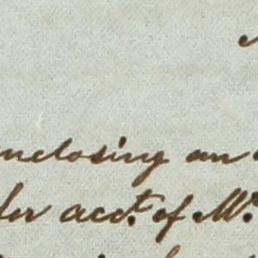 enclosing an
der acct. of Mr.